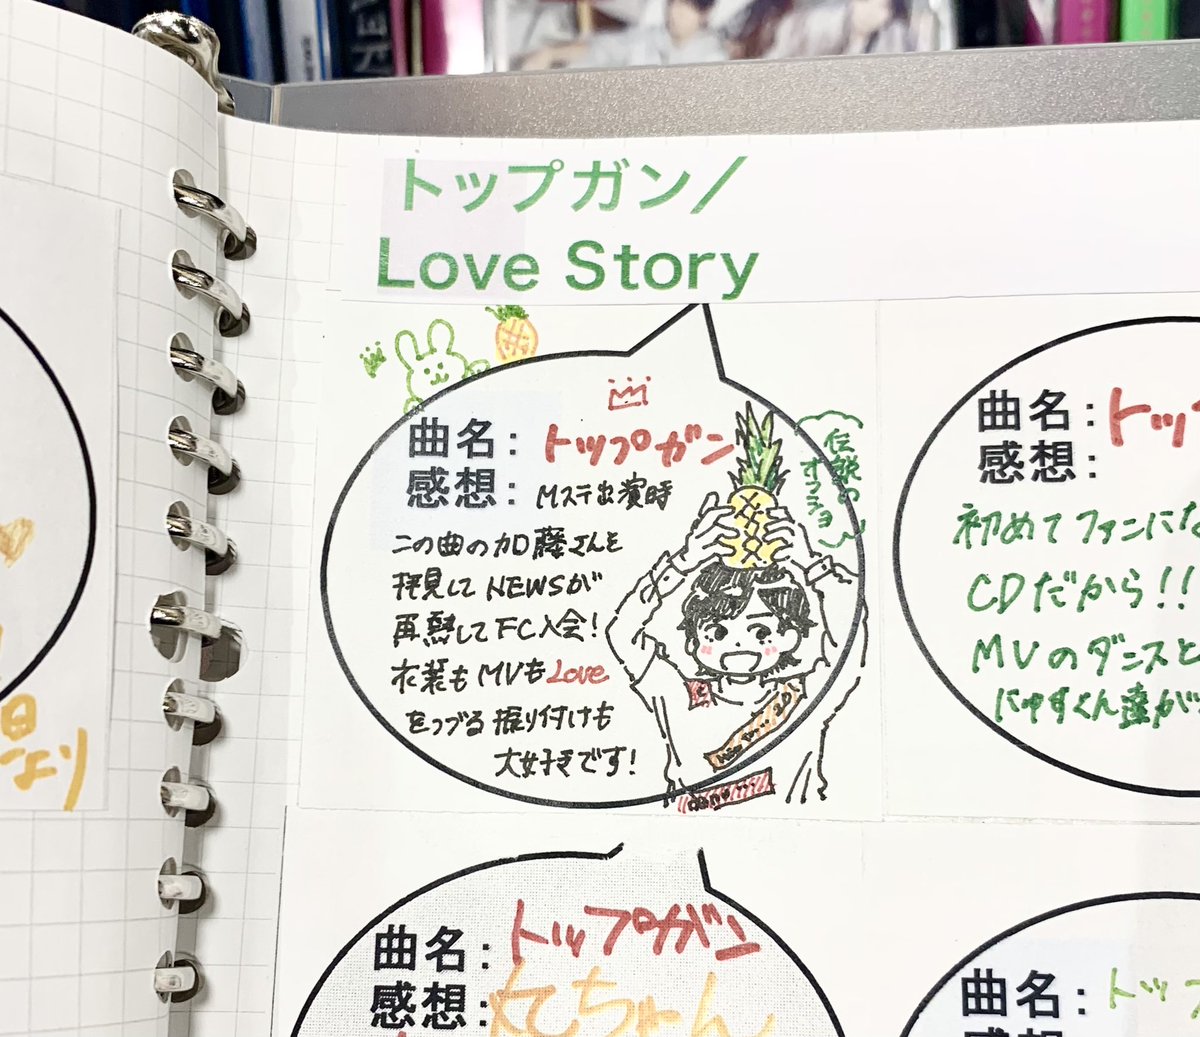 トップガン/
Love Story
曲名: トップガン
感想: Mステ出演時
この曲の加藤さんを
拝見して NEWSが
再熱して FC入会!
衣装も MVも Love
をつづる 振り付けも
大好きです!
伝説の
オフショ
曲名: トッ
感想:
初めて ファンにな
CDだから!!
MVのダンスと
にゅすくん達が
曲名: トップガン
感想:
ちゃん
曲名: トップ
より